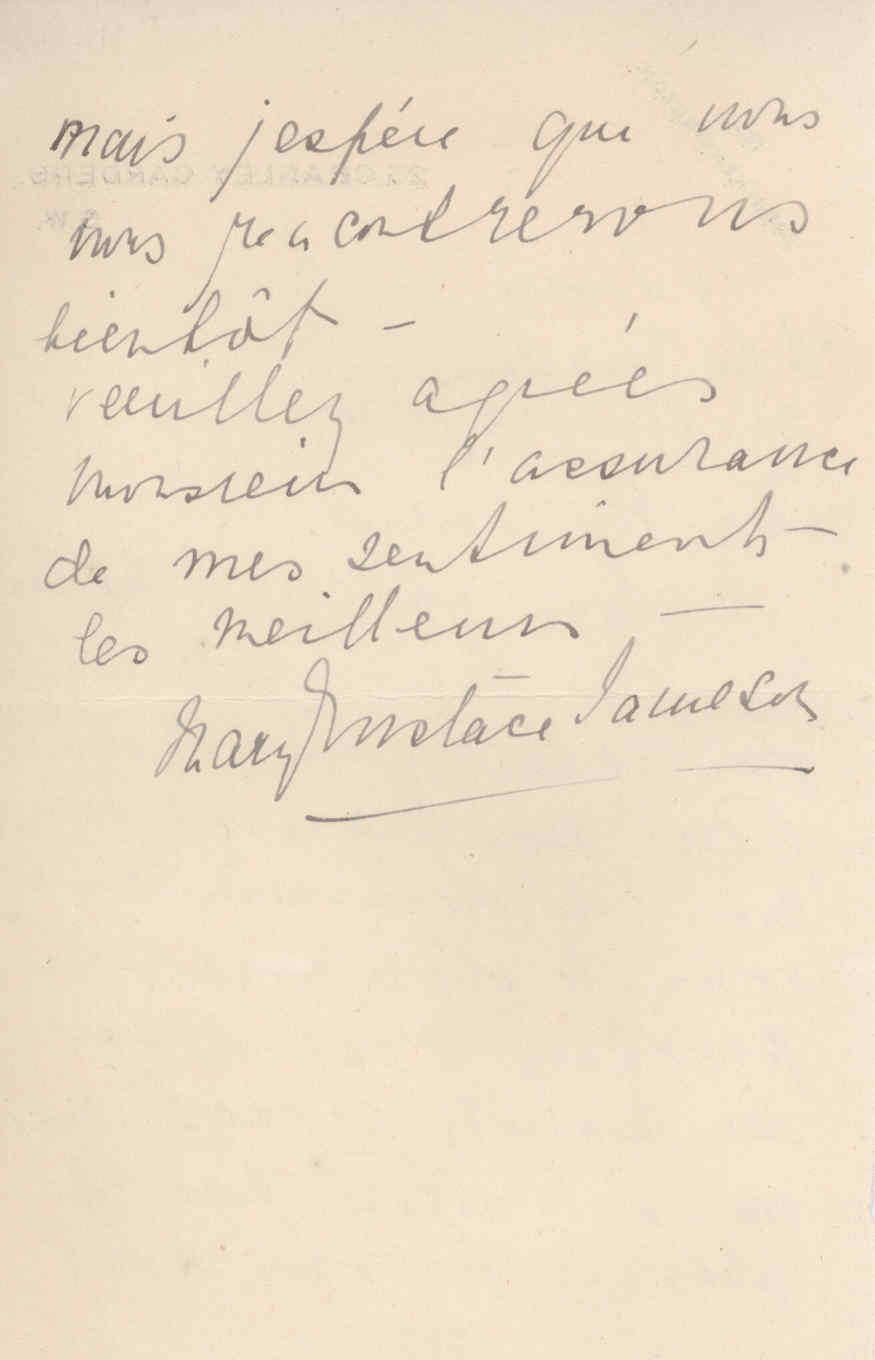 mais j'espére que nous
nous rencontrerons
bientôt –
veuillez agréés
monsieur l'assurance
de mes sentiments –
les meilleurs —
Mary Eustace Jameson